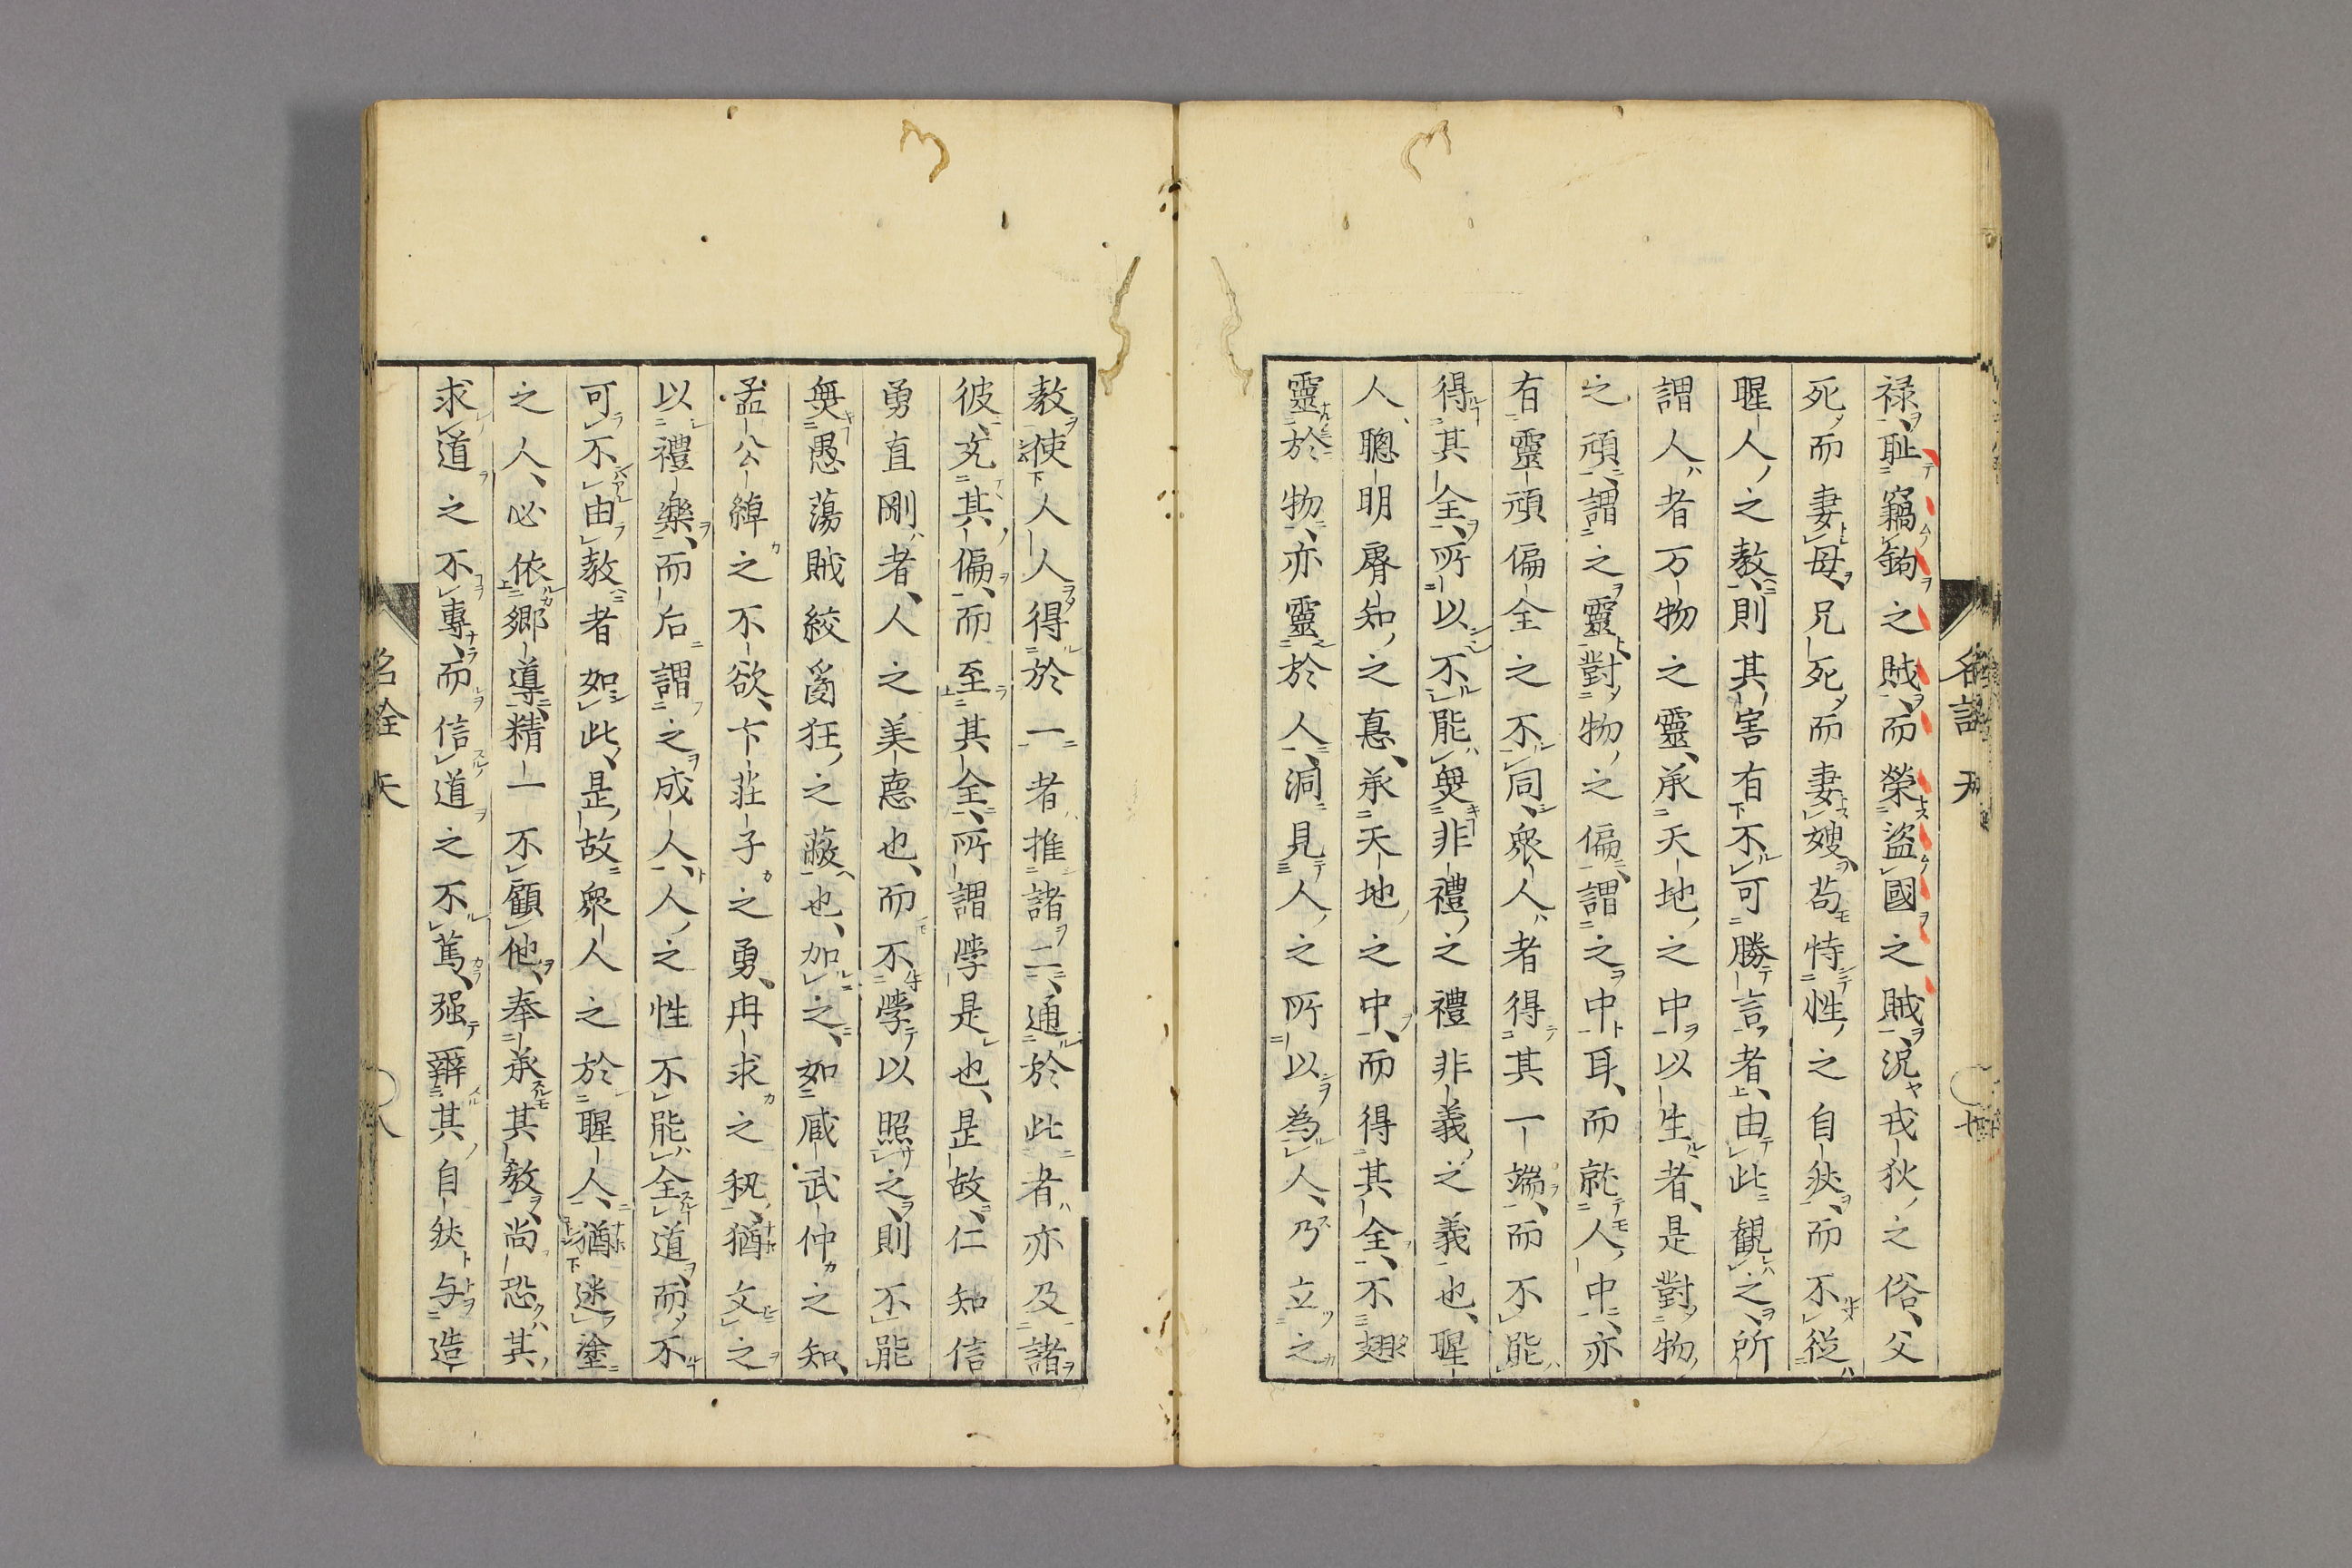 禄、耻竊鉤之賊、而榮盜國之賊、況戎狄之俗、父
死而妻母、兄死而妻嫂、苟恃性之自狀、而不從
聖人之教、則其害有不可勝言者、由此觀之、所
謂人者万物之靈、承天地之中以生者、是對物
之頑、謂之靈、對物之偏、謂之中耳、而就人中、亦
有靈頑偏全之不同、衆人者得其一端、而不能
得其全、所以不能無非禮之禮非義之義也、聖
人、聰明睿知之惪、承天地之中、而得其全、不翅
靈於物、亦靈於人、洞見人之所以為人、乃立之
名詮 天
教、使人人得於一者推諸二、通於此者亦及諸
彼、充其偏、而至其全、所謂學是也、是故、仁知信
勇直剛者、人之美惪也、而不學以照之、則不能
無愚蕩賊絞亂狂之蔽也、加之、如臧武仲之知、
孟公綽之不欲、卞莊子之勇、冉求之藝、猶文之
以禮樂、而后謂之成人、人之性不能全道、而不
可不由教者如此、是故衆人之於聖人、猶迷塗
之人、必依鄉導、精一不顧他、奉承其教、尚恐其
求道之不專、而信道之不篤、强辨其自狀与造
名詮 天
八